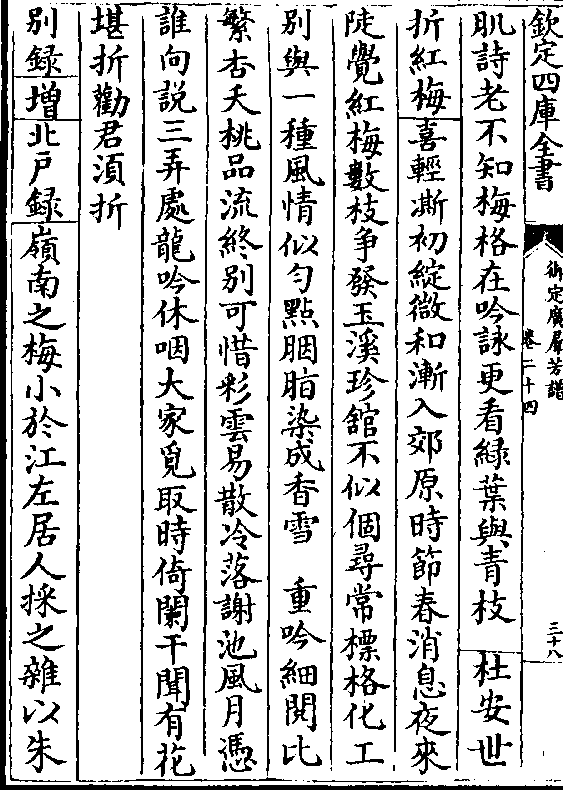 欽定四庫全書
御定廣羣芳譜
卷二十四
三十八
肌詩老不知梅格在吟詠更看緑葉與青枝 杜安世
折紅梅喜輕澌初綻微和漸入郊原時節春消息夜來
陡覺紅梅數枝争發玉溪珍舘不似個尋常標格化工
别與一種風情似匀點胭脂染成香雪 重吟細閱比
繁杏夭桃品流終别可惜彩雲易散冷落謝池風月憑
誰向説三弄處龍吟休咽大家覓取時倚闌干聞有花
堪折勸君湏折
别録增北戸録嶺南之梅小於江左居人採之雜以朱